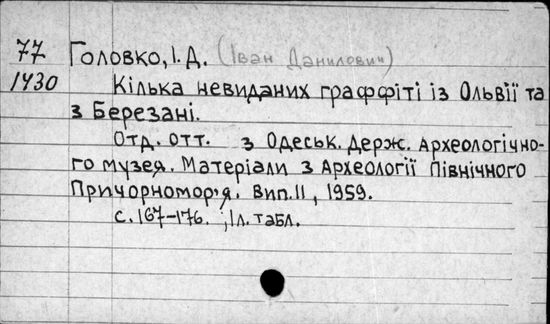 77 Головко, І. Д. (Іван Данилович)
1430 Кілька невиданих граффіті із Ольвії та
з Березані.
Отд. отт. з Одеськ. Держ. Археологічно-
го музея. Матеріали з Археології Північного
Причорномор'я. Вип. II, 1959.
с. 167-176. ; Іл. табл.